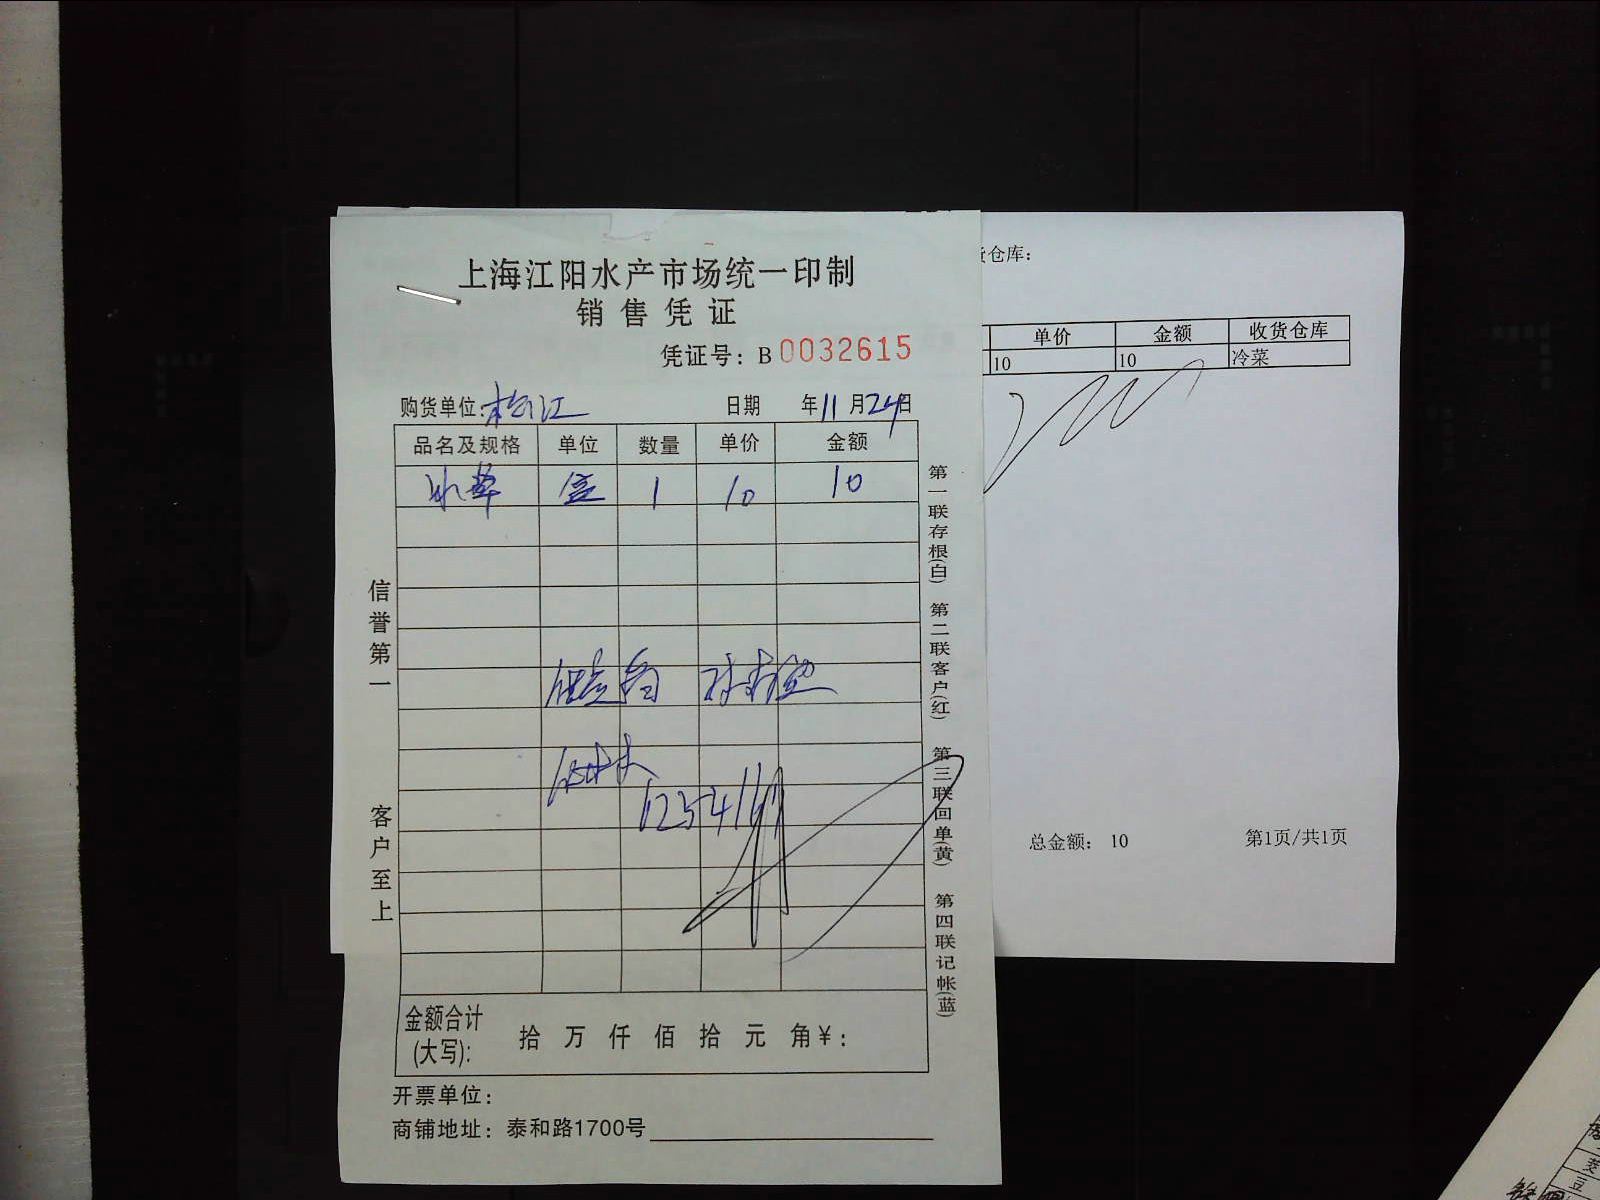 上海江阳水产市场统一印制
销售凭证
凭证号：B 0032615
购货单位：松江 日期 年11月24日
品名及规格 单位 数量 单价 金额
冰草 盒 1 10 10
信誉第一
客户至上
第一联存根(白) 第二联客户(红) 第三联回单(黄) 第四联记帐(蓝)
金额合计
(大写): 拾 万 仟 佰 拾 元 角 ¥:
开票单位：
商铺地址：泰和路1700号
仓库：
单价 金额 收货仓库
10 10 冷菜
总金额： 10 第1页/共1页